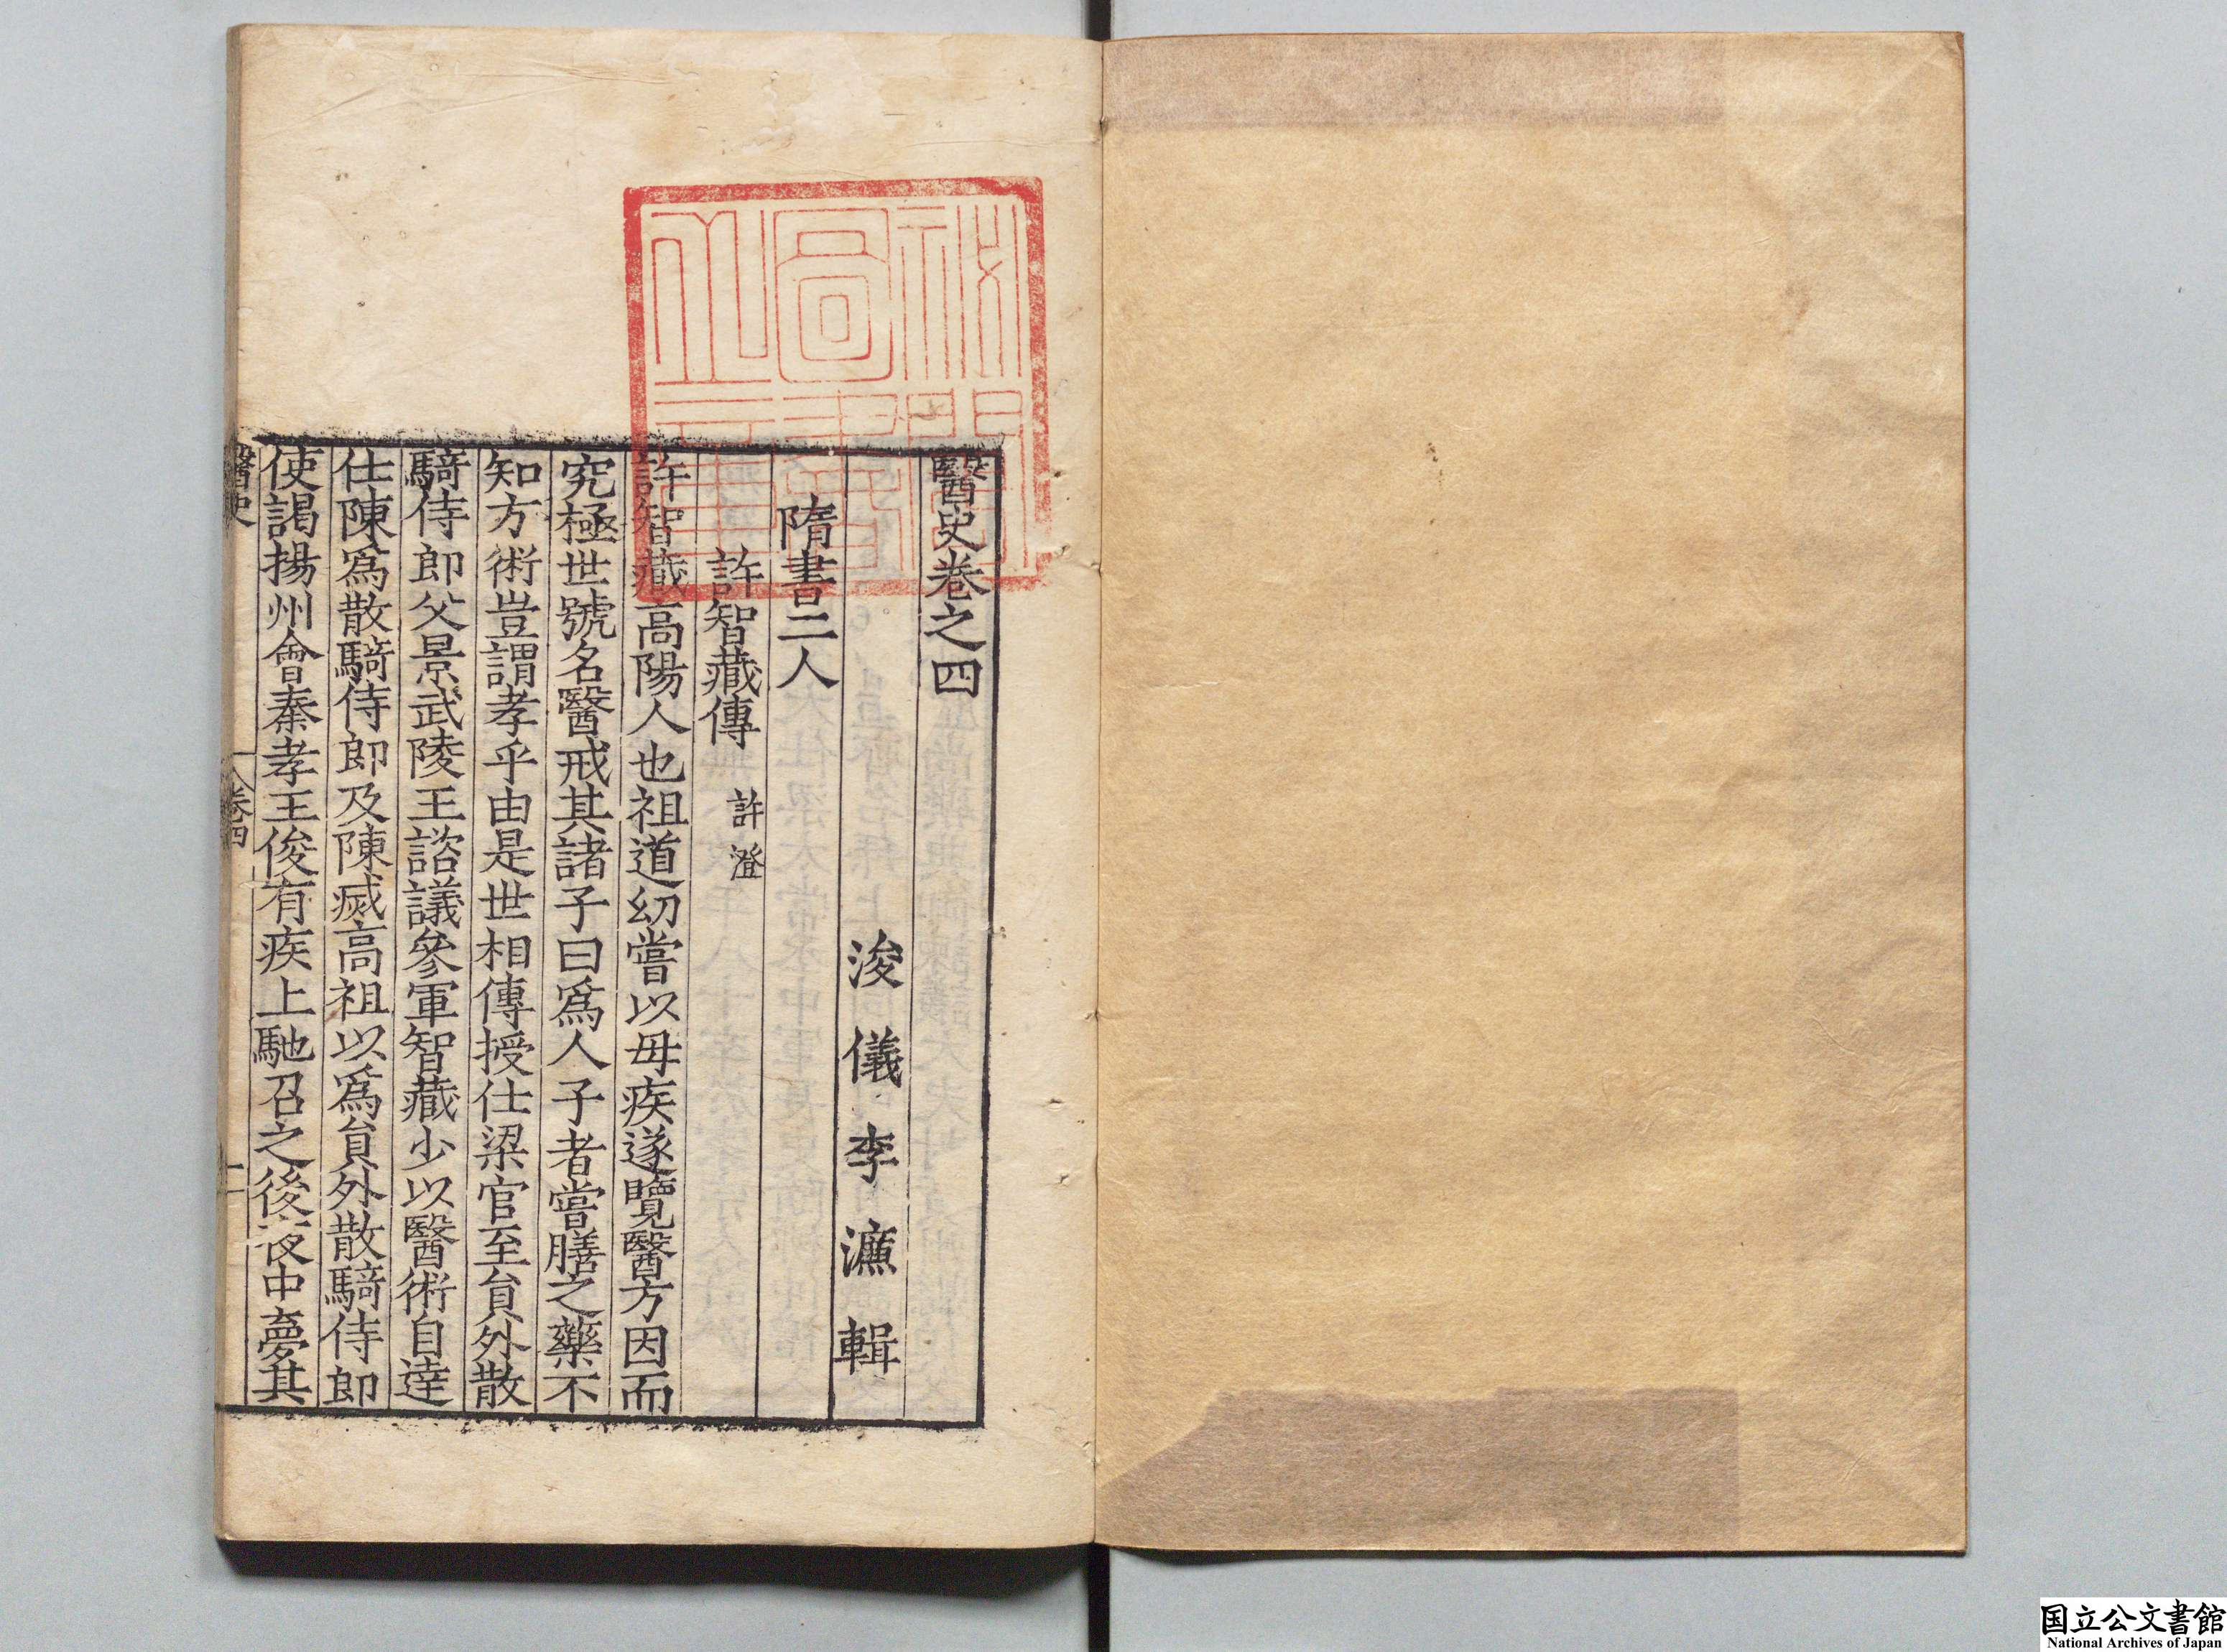 醫史卷之四
浚儀李濂輯
隋書二人
許智藏傳 許澄
許智藏高陽人也祖道幼嘗以毋疾遂覽醫方因而
究極世號名醫戒其諸子曰爲人子者嘗膳之藥不
知方術豈謂孝乎由是世相傳授仕梁官至貟外散
騎侍郎父景武陵王諮議參軍智藏少以醫術自達
仕陳爲散騎侍郎及陳滅高祖以爲貟外散騎侍郎
使謁揚州會秦孝王俊有疾上馳召之後夜中夢其
醫史 卷四
国立公文書館
National Archives of Japan